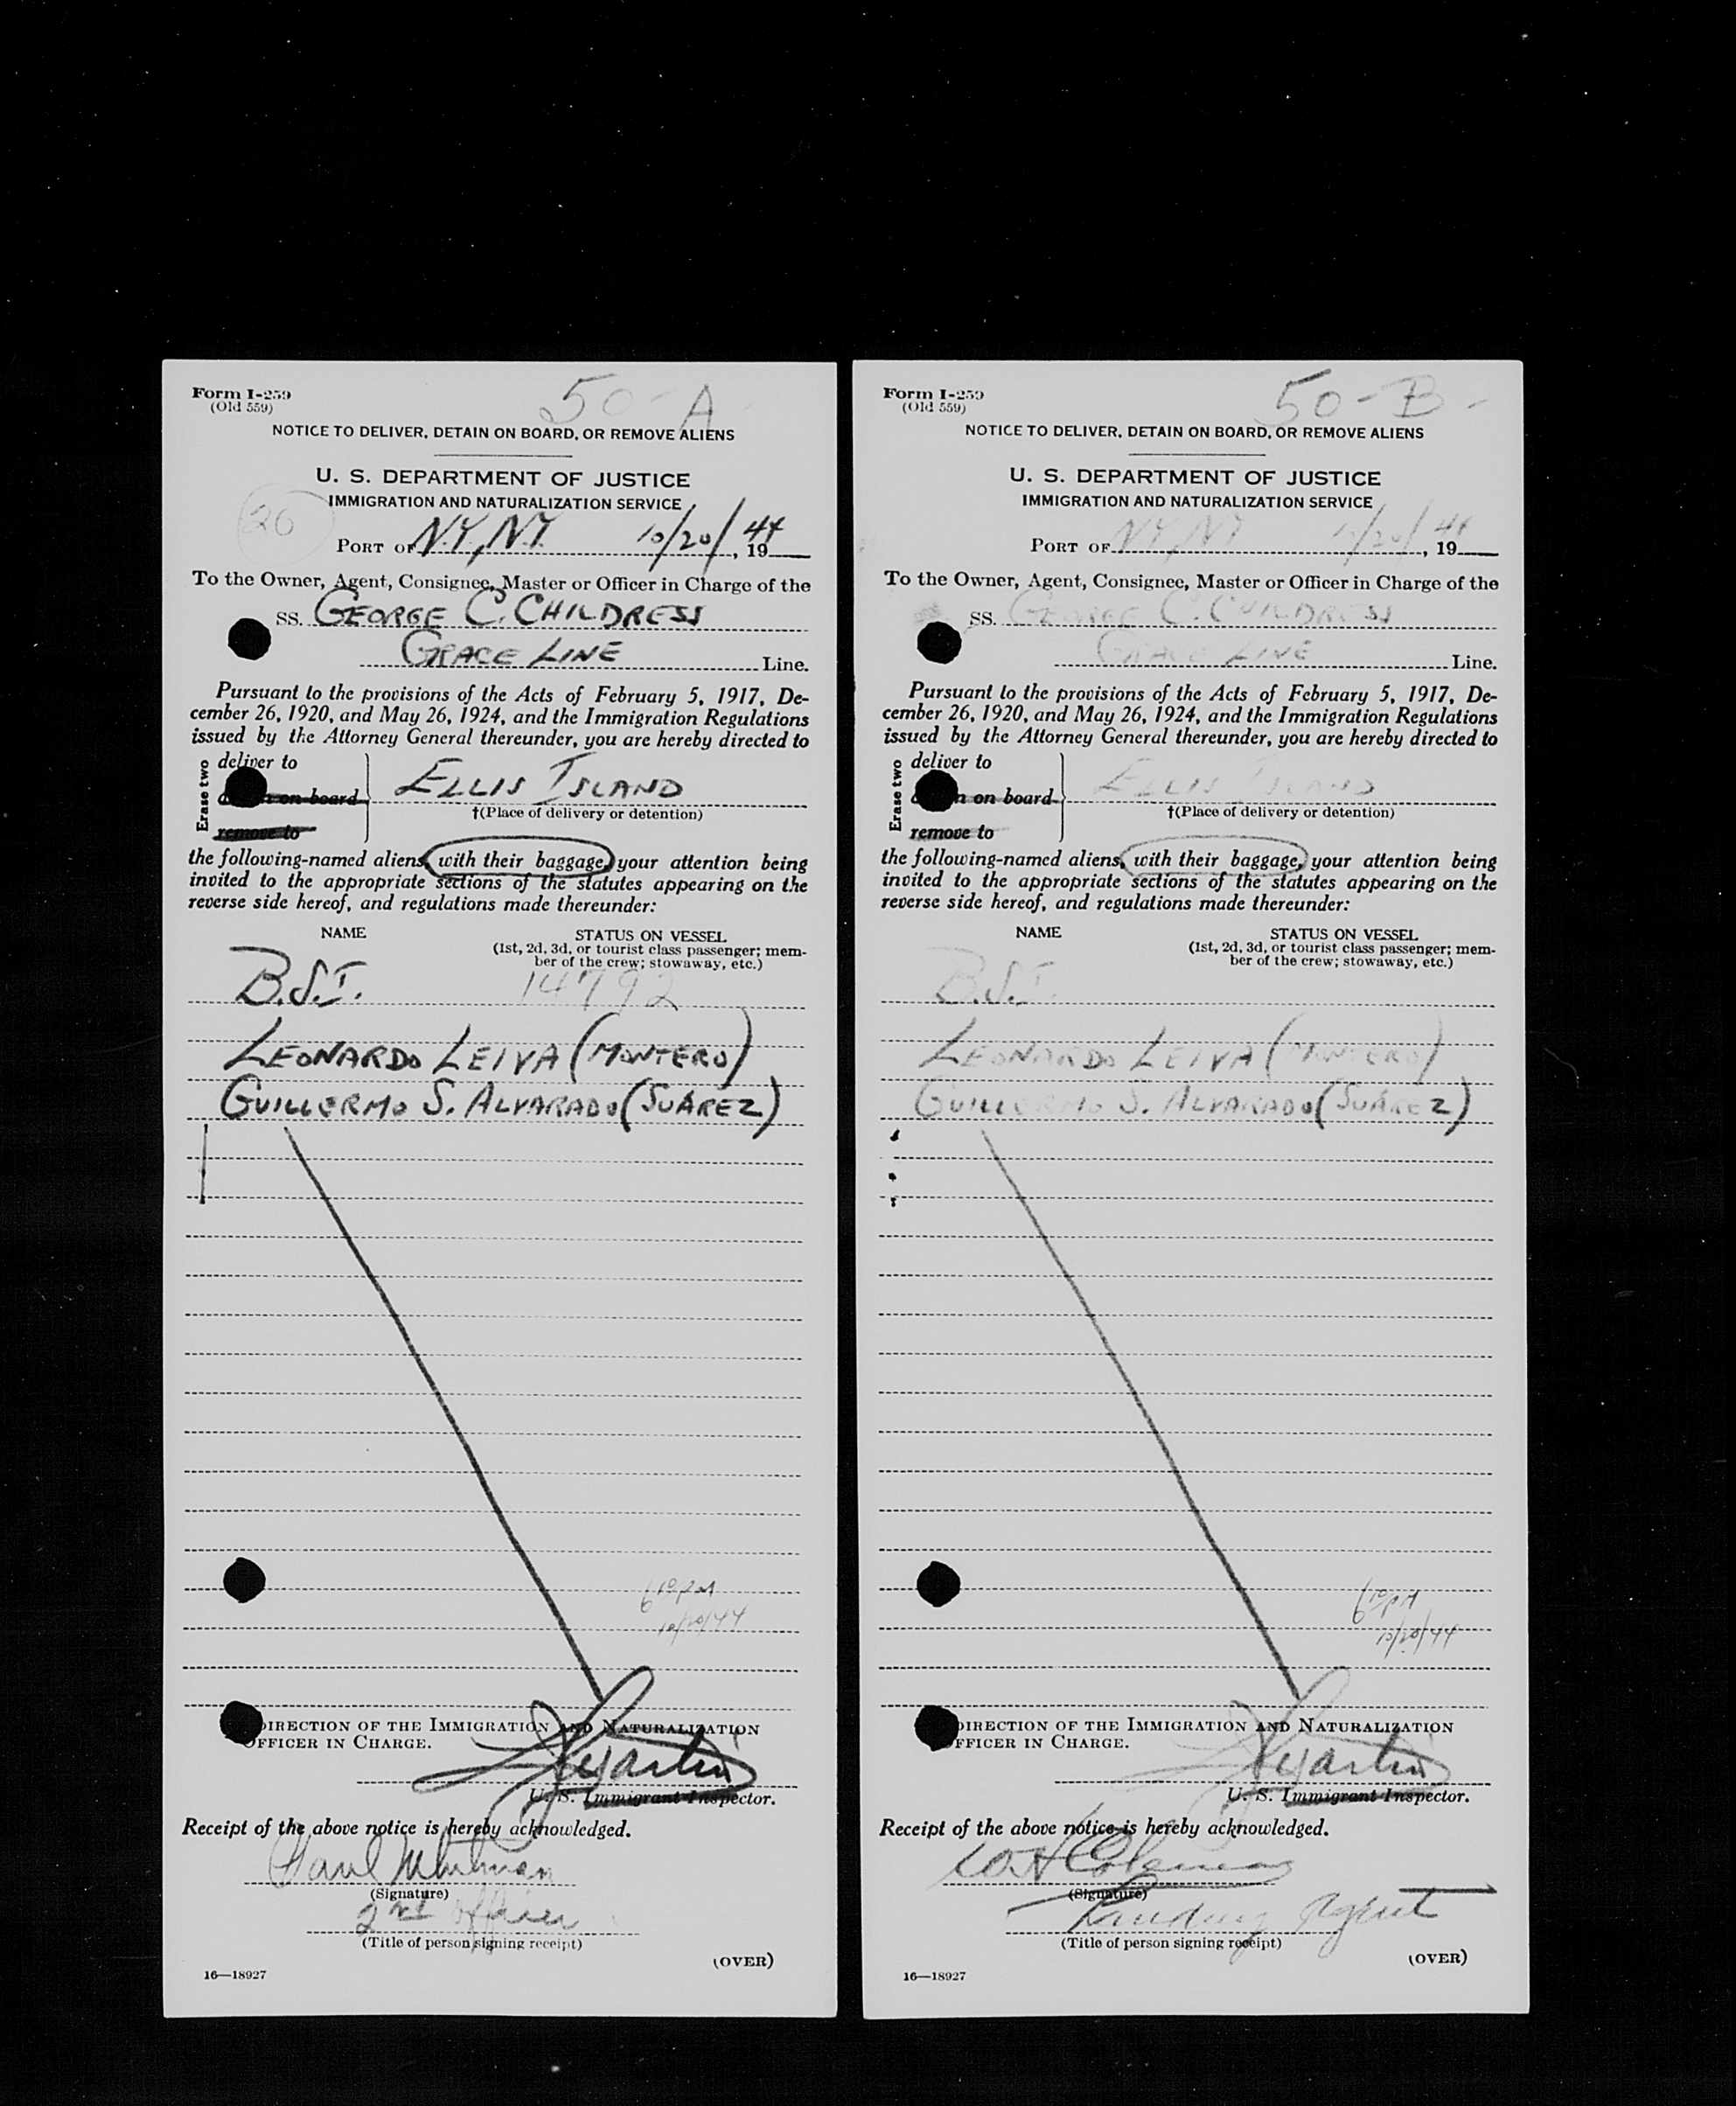 50-A
Form I-259
(Old 559)
NOTICE TO DELIVER, DETAIN ON BOARD, OR REMOVE ALIENS
U. S. DEPARTMENT OF JUSTICE
IMMIGRATION AND NATURALIZATION SERVICE
26
PORT OF N.Y., N.Y. 10/20/, 1944
To the Owner, Agent, Consignee, Master or Officer in Charge of the
SS. GEORGE C. CHILDRESS
GRACE LINE Line.
Pursuant to the provisions of the Acts of February 5, 1917, De-
cember 26, 1920, and May 26, 1924, and the Immigration Regulations
issued by the Attorney General thereunder, you are hereby directed to
Erase two
deliver to
on board
remove to
ELLIS ISLAND
†(Place of delivery or detention)
the following-named aliens, with their baggage, your attention being
invited to the appropriate sections of the statutes appearing on the
reverse side hereof, and regulations made thereunder:
NAME STATUS ON VESSEL
(1st, 2d, 3d, or tourist class passenger; mem-
ber of the crew; stowaway, etc.)
B.S.I. 14792
LEONARDO LEIVA (MONTERO)
GUILLERMO S. ALVARADO (SUÁREZ)
6 10 PM
10/20/44
DIRECTION OF THE IMMIGRATION AND NATURALIZATION
OFFICER IN CHARGE.
Martin
U. S. Immigrant Inspector.
Receipt of the above notice is hereby acknowledged.
Paul
(Signature)
2nd Officer
(Title of person signing receipt)
(OVER)
16—18927
50-B-
Form I-259
(Old 559)
NOTICE TO DELIVER, DETAIN ON BOARD, OR REMOVE ALIENS
U. S. DEPARTMENT OF JUSTICE
IMMIGRATION AND NATURALIZATION SERVICE
PORT OF N.Y., N.Y. 10/20/, 1944
To the Owner, Agent, Consignee, Master or Officer in Charge of the
SS. GEORGE C. CHILDRESS
GRACE LINE Line.
Pursuant to the provisions of the Acts of February 5, 1917, De-
cember 26, 1920, and May 26, 1924, and the Immigration Regulations
issued by the Attorney General thereunder, you are hereby directed to
Erase two
deliver to
on board
remove to
ELLIS ISLAND
†(Place of delivery or detention)
the following-named aliens, with their baggage, your attention being
invited to the appropriate sections of the statutes appearing on the
reverse side hereof, and regulations made thereunder:
NAME STATUS ON VESSEL
(1st, 2d, 3d, or tourist class passenger; mem-
ber of the crew; stowaway, etc.)
B.S.I.
LEONARDO LEIVA (MONTERO)
GUILLERMO S. ALVARADO (SUÁREZ)
6 10 PM
10/20/44
DIRECTION OF THE IMMIGRATION AND NATURALIZATION
OFFICER IN CHARGE.
Martin
U. S. Immigrant Inspector.
Receipt of the above notice is hereby acknowledged.
W H Coleman
(Signature)
Landing Agent
(Title of person signing receipt)
(OVER)
16—18927